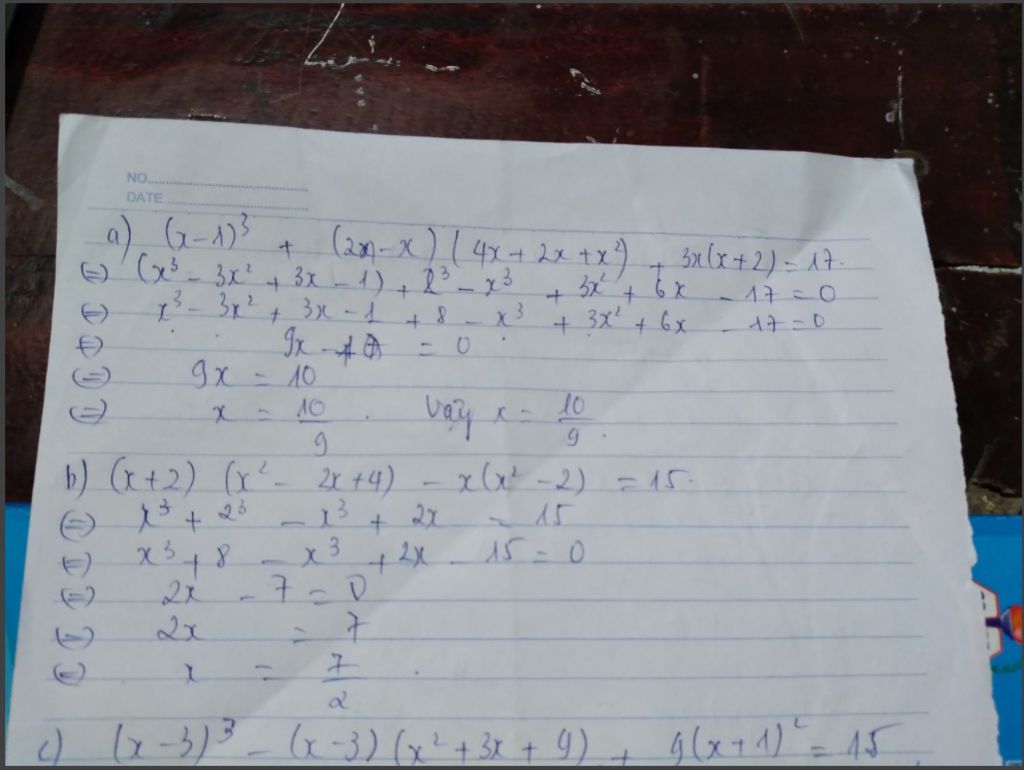 NO.
DATE
a) (x-1)³ + (2x-x)(4x+2x+x²) + 3x(x+2)=17.
(=) (x³ - 3x² + 3x - 1) + 2³ - x³ + 3x² + 6x - 17 = 0
(=) x³ - 3x² + 3x - 1 + 8 - x³ + 3x² + 6x - 17 = 0
(=) 9x - 10 = 0
(=) 9x = 10
(=) x = 10/9 . Vậy x = 10/9.
b) (x+2) (x² - 2x+4) - x(x² - 2) = 15.
(=) x³ + 2³ - x³ + 2x = 15
(=) x³ + 8 - x³ + 2x - 15 = 0
(=) 2x - 7 = 0
(=) 2x = 7
(=) x = 7/2 .
c) (x-3)³ - (x-3)(x²+3x+9) + 9(x+1)² = 15